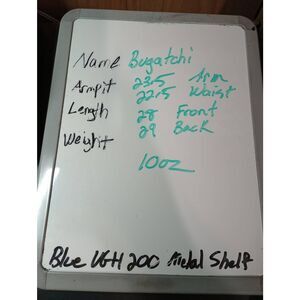 Name Bugatchi
Armpit 23.5 Arm
22.5 Waist
Length 28 Front
29 Back
Weight
10oz
Blue VGH 200 Metal Shelf